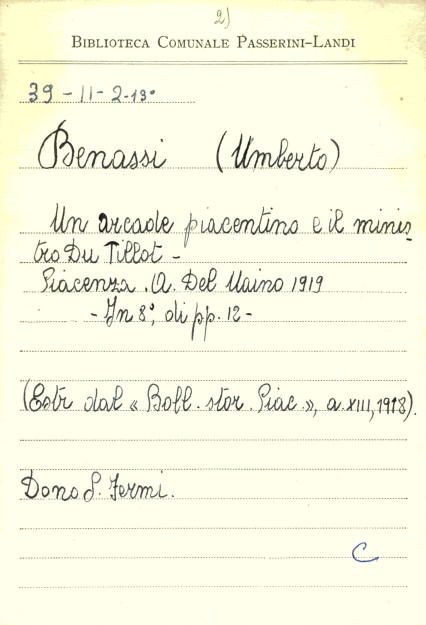 2)
BIBLIOTECA COMUNALE PASSERINI-LANDI
39-11-2-13°
Benassi (Umberto)
Un arcade piacentino e il minis-
tro Du Tillot -
Piacenza. A. Del Maino 1919
- In 8°, di pp. 12 -
(Estr dal « Boll. stor. Piac. », a. XIII, 1918).
Dono S. Fermi.
C